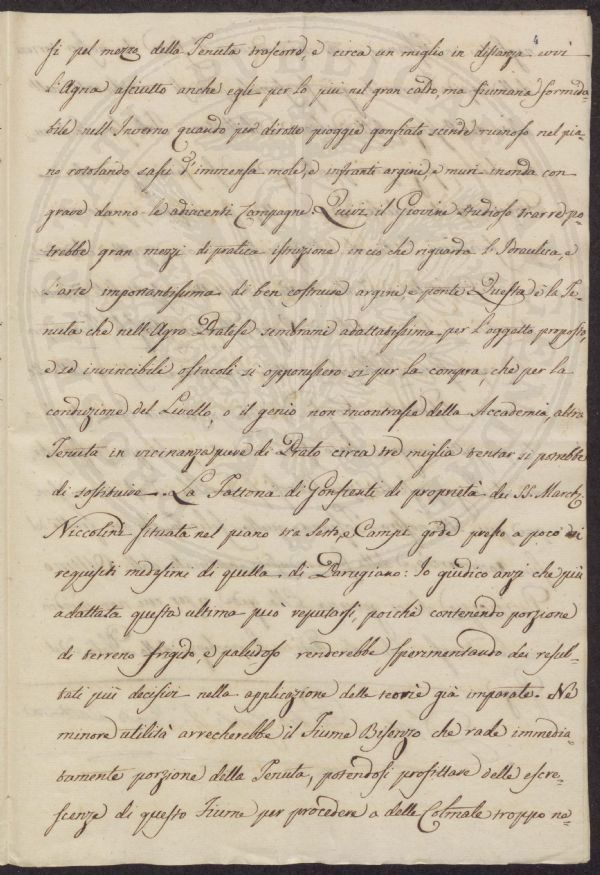 4
si pel mezzo della Tenuta trascorre, e circa un miglio in distanza evvi
l'Agna asciutto anche egli per lo più nel gran caldo, ma fiumana formida-
bile nell'Inverno quando per dirotte pioggie gonfiato scende ruinoso nel pia-
no rotolando sassi d'immensa mole, e infranti argini, e muri inonda con
grave danno le adiacenti Campagne. Quivi il Giovine studioso trarre po-
trebbe gran mezzi di pratica istruzione in ciò che riguarda l'Idraulica, e
l'arte importantissima di ben costruire argini e ponti. Questa è la Te-
nuta che nell'Agro Pratese sembrami adattatissima per l'oggetto proposto,
e se invincibili ostacoli si opponessero sì per la compra, che per la
conduzione del Livello, o il genio non incontrasse della Accademia, altra
Tenuta in vicinanza pure di Prato circa tre miglia tentar si potrebbe
di sostituire. La Fattoria di Gonfienti di proprietà dei SS. March.
Niccolini situata nel piano tra Sesto, e Campi gode presso a poco di
requisiti medesimi di quella di Parugiano: Io giudico anzi che più
adattata questa ultima può reputarsi, poichè contenendo porzione
di terreno frigido, e paludoso renderebbe sperimentando dei resul-
tati più decisivi nella applicazione delle teorie già imparate. Nè
minore utilità arrecherebbe il Fiume Bisenzo che rade immedia-
tamente porzione della Tenuta, potendosi profittare delle escre-
scenze di questo Fiume per procedere a delle Colmate troppo ne-